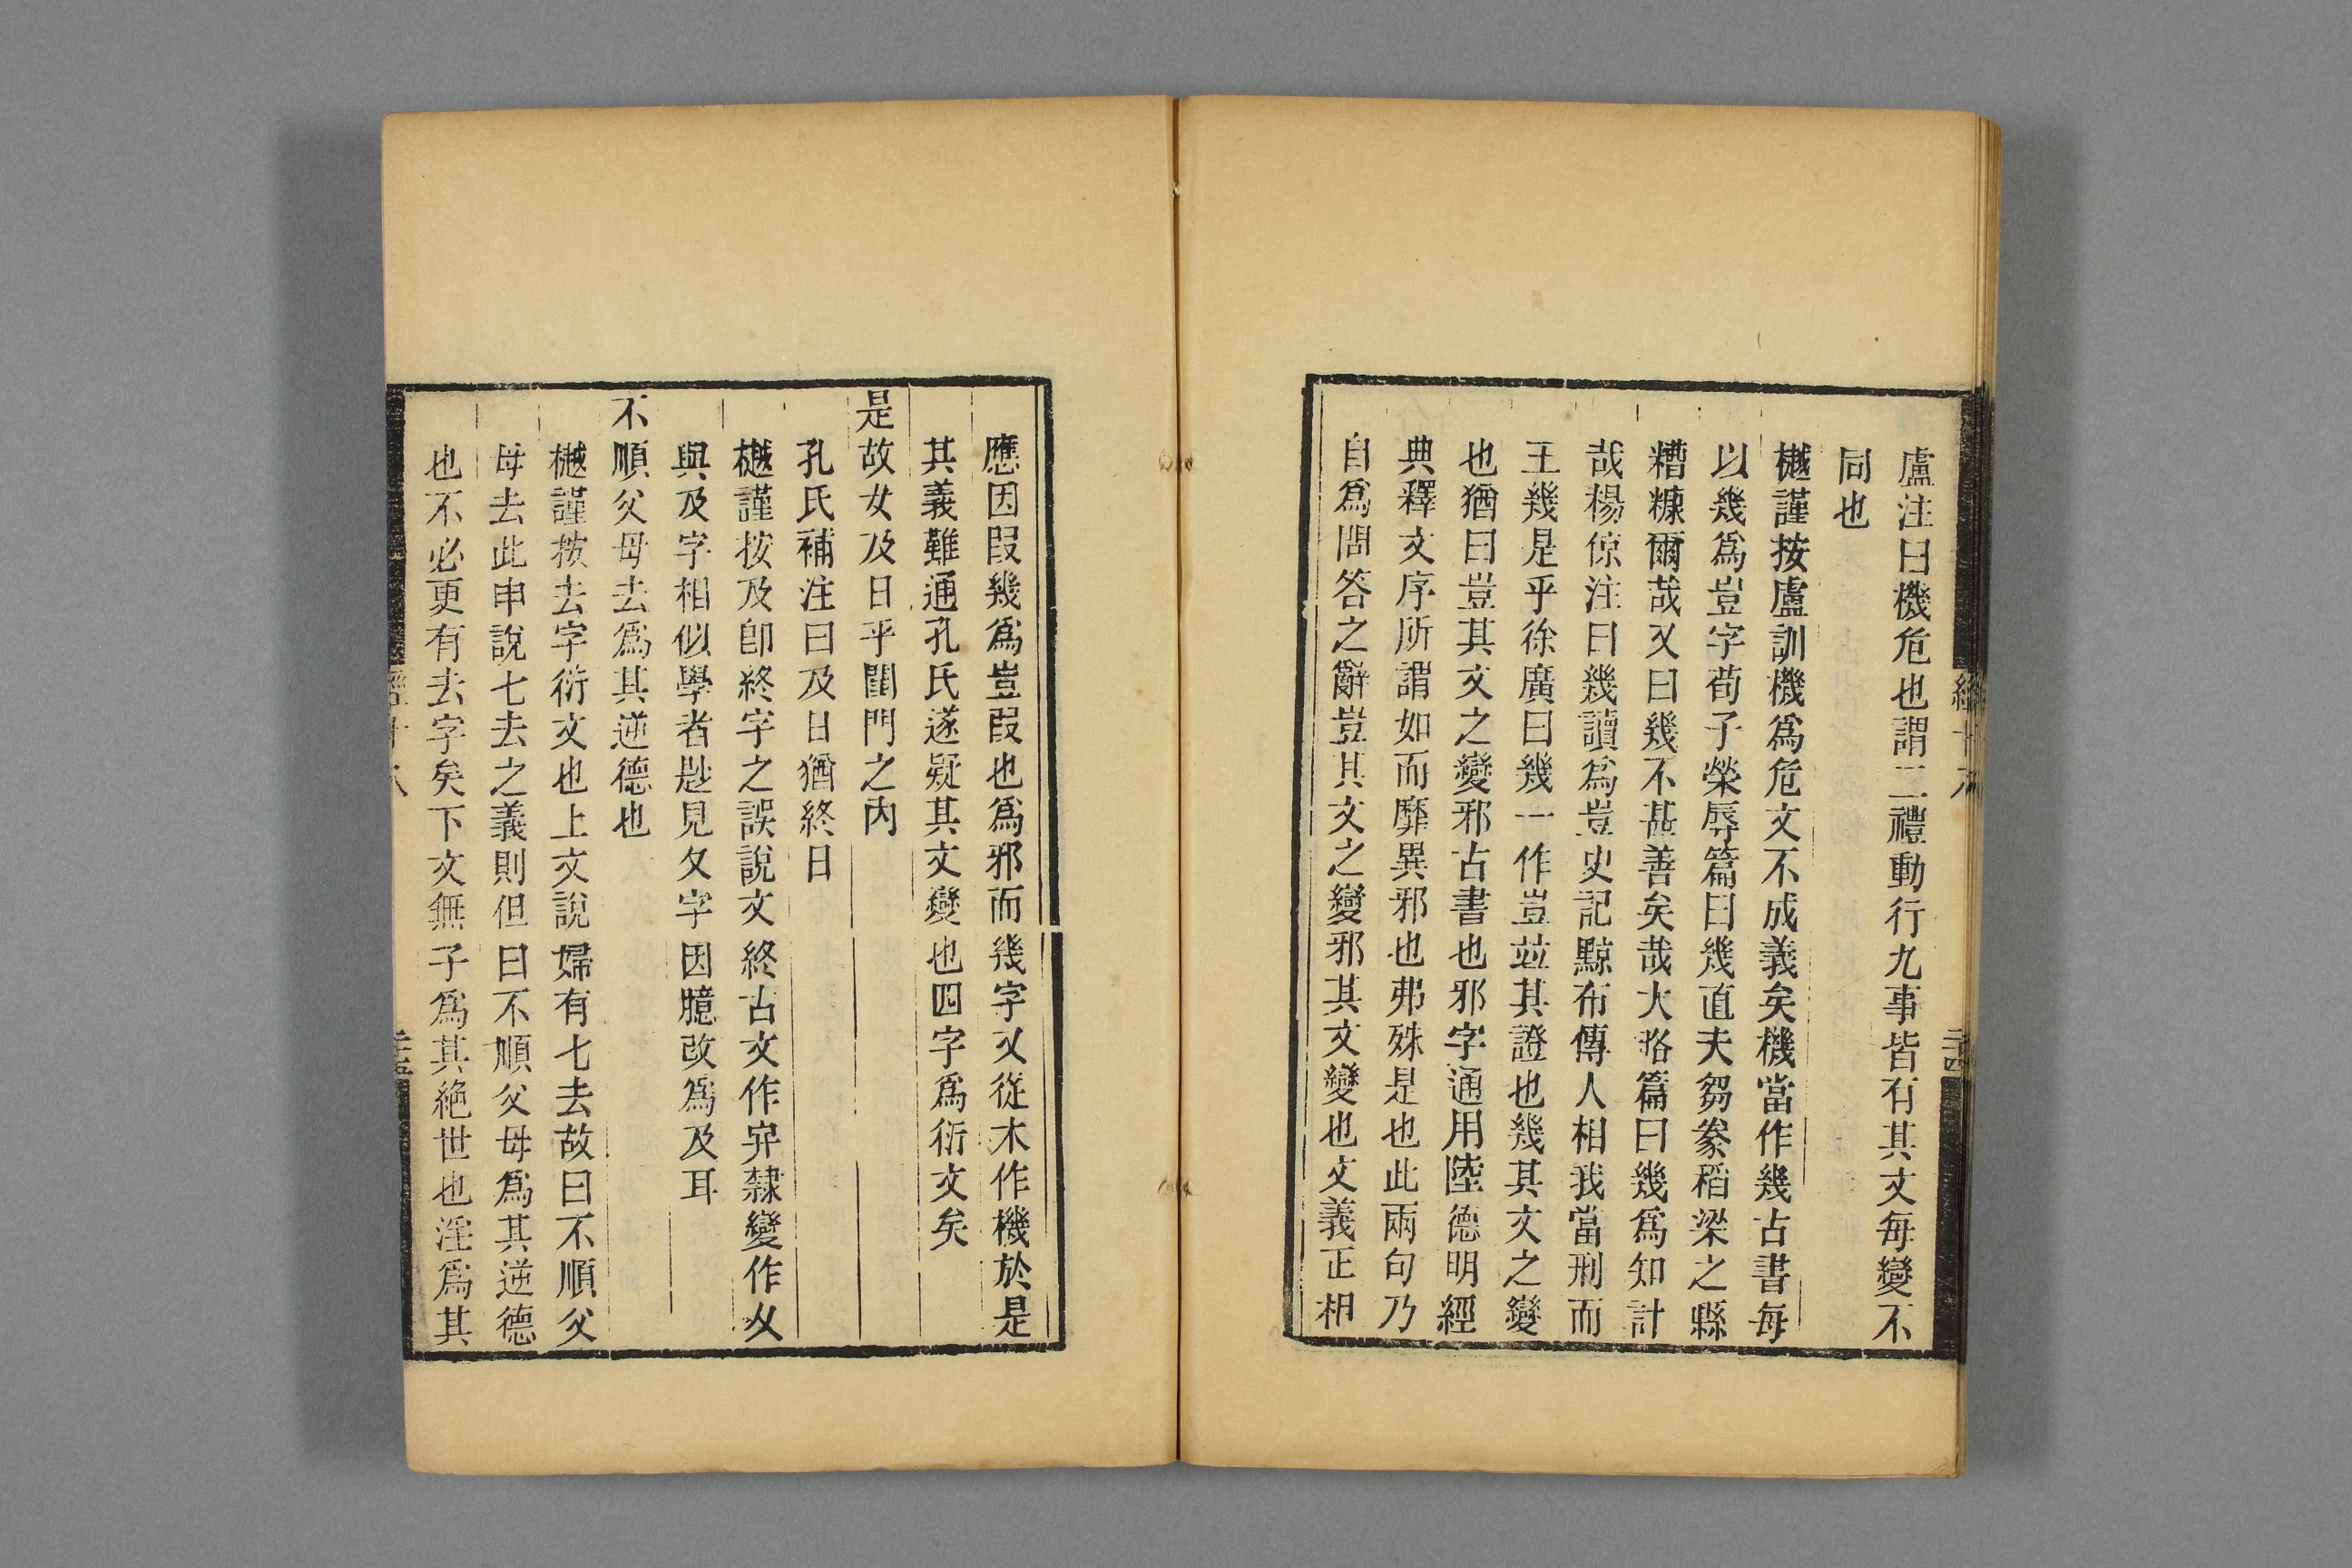 盧注曰機危也謂二禮動行九事皆有其文每變不
同也
樾謹按盧訓機爲危文不成義矣機當作幾古書每
以幾爲豈字荀子榮辱篇曰幾直夫芻豢稻梁之縣
糟糠爾哉又曰幾不甚善矣哉大略篇曰幾爲知計
哉楊倞注曰幾讀爲豈史記黥布傳人相我當刑而
王幾是乎徐廣曰幾一作豈竝其證也幾其文之變
也猶曰豈其文之變邪古書也邪字通用陸德明經
典釋文序所謂如而靡異邪也弗殊是也此兩句乃
自爲問答之辭豈其文之變邪其文變也文義正相
應因叚幾爲豈叚也爲邪而幾字又從木作機於是
其義難通孔氏遂疑其文變也四字爲衍文矣
是故女及日乎閨門之內
孔氏補注曰及日猶終日
樾謹按及卽終字之誤說文終古文作𠔾隸變作夂
與及字相似學者尟見夂字因臆改爲及耳
不順父母去爲其逆德也
樾謹按去字衍文也上文說婦有七去故曰不順父
母去此申說七去之義則但曰不順父母爲其逆德
也不必更有去字矣下文無子爲其絕世也淫爲其